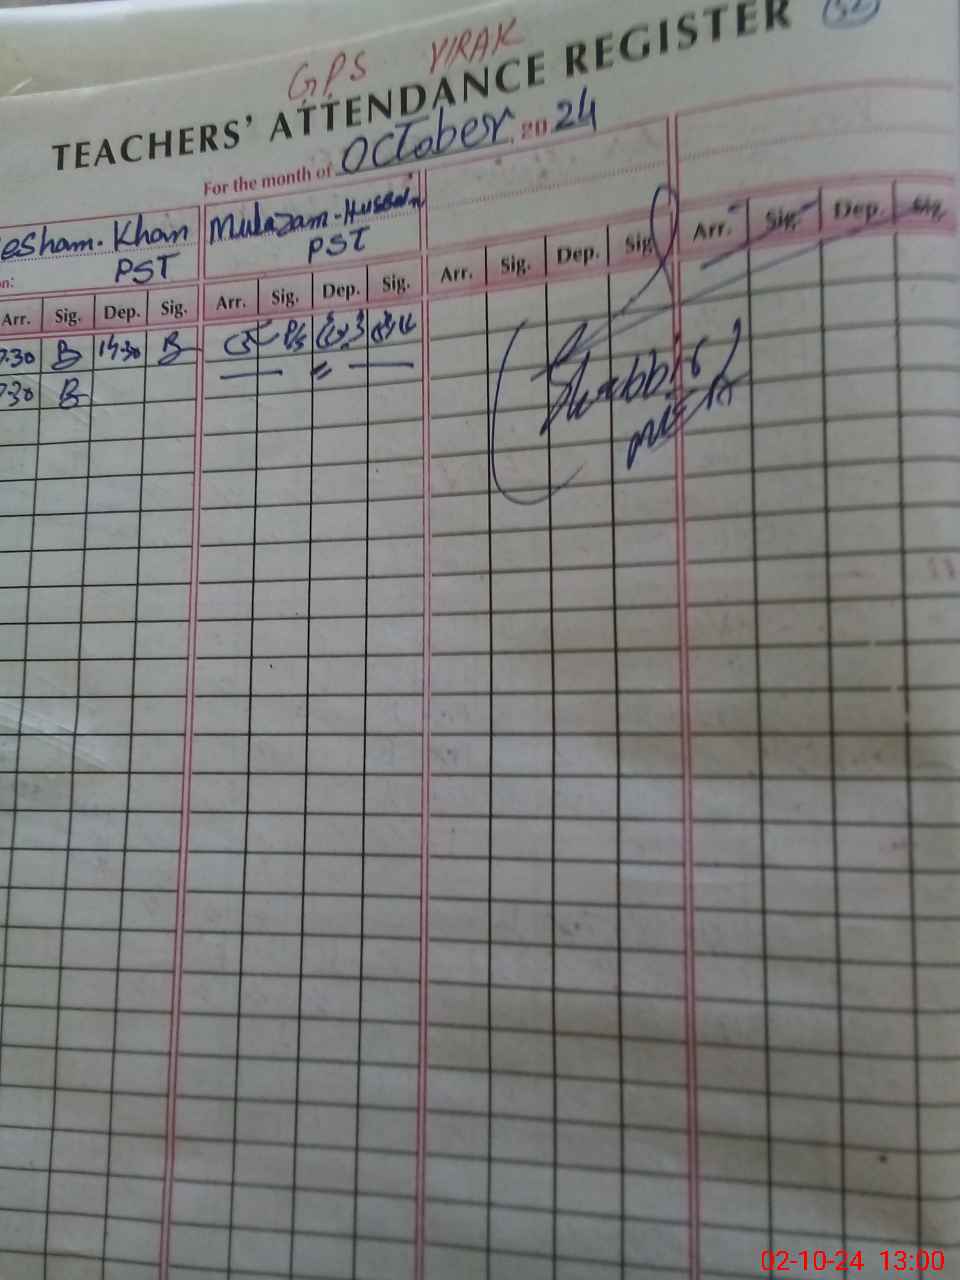 GPS YIRAK
TEACHERS' ATTENDANCE REGISTER
For the month of October 2024
esham. Khan
PST
Mulazam-Hussain
PST
on:
Arr. Sig. Dep. Sig. Arr. Sig. Dep. Sig. Arr. Sig. Dep. Sig. Arr. Sig. Dep. Sig.
7.30 B 14:30 B
7:30 B
Shabbir
02-10-24 13:00